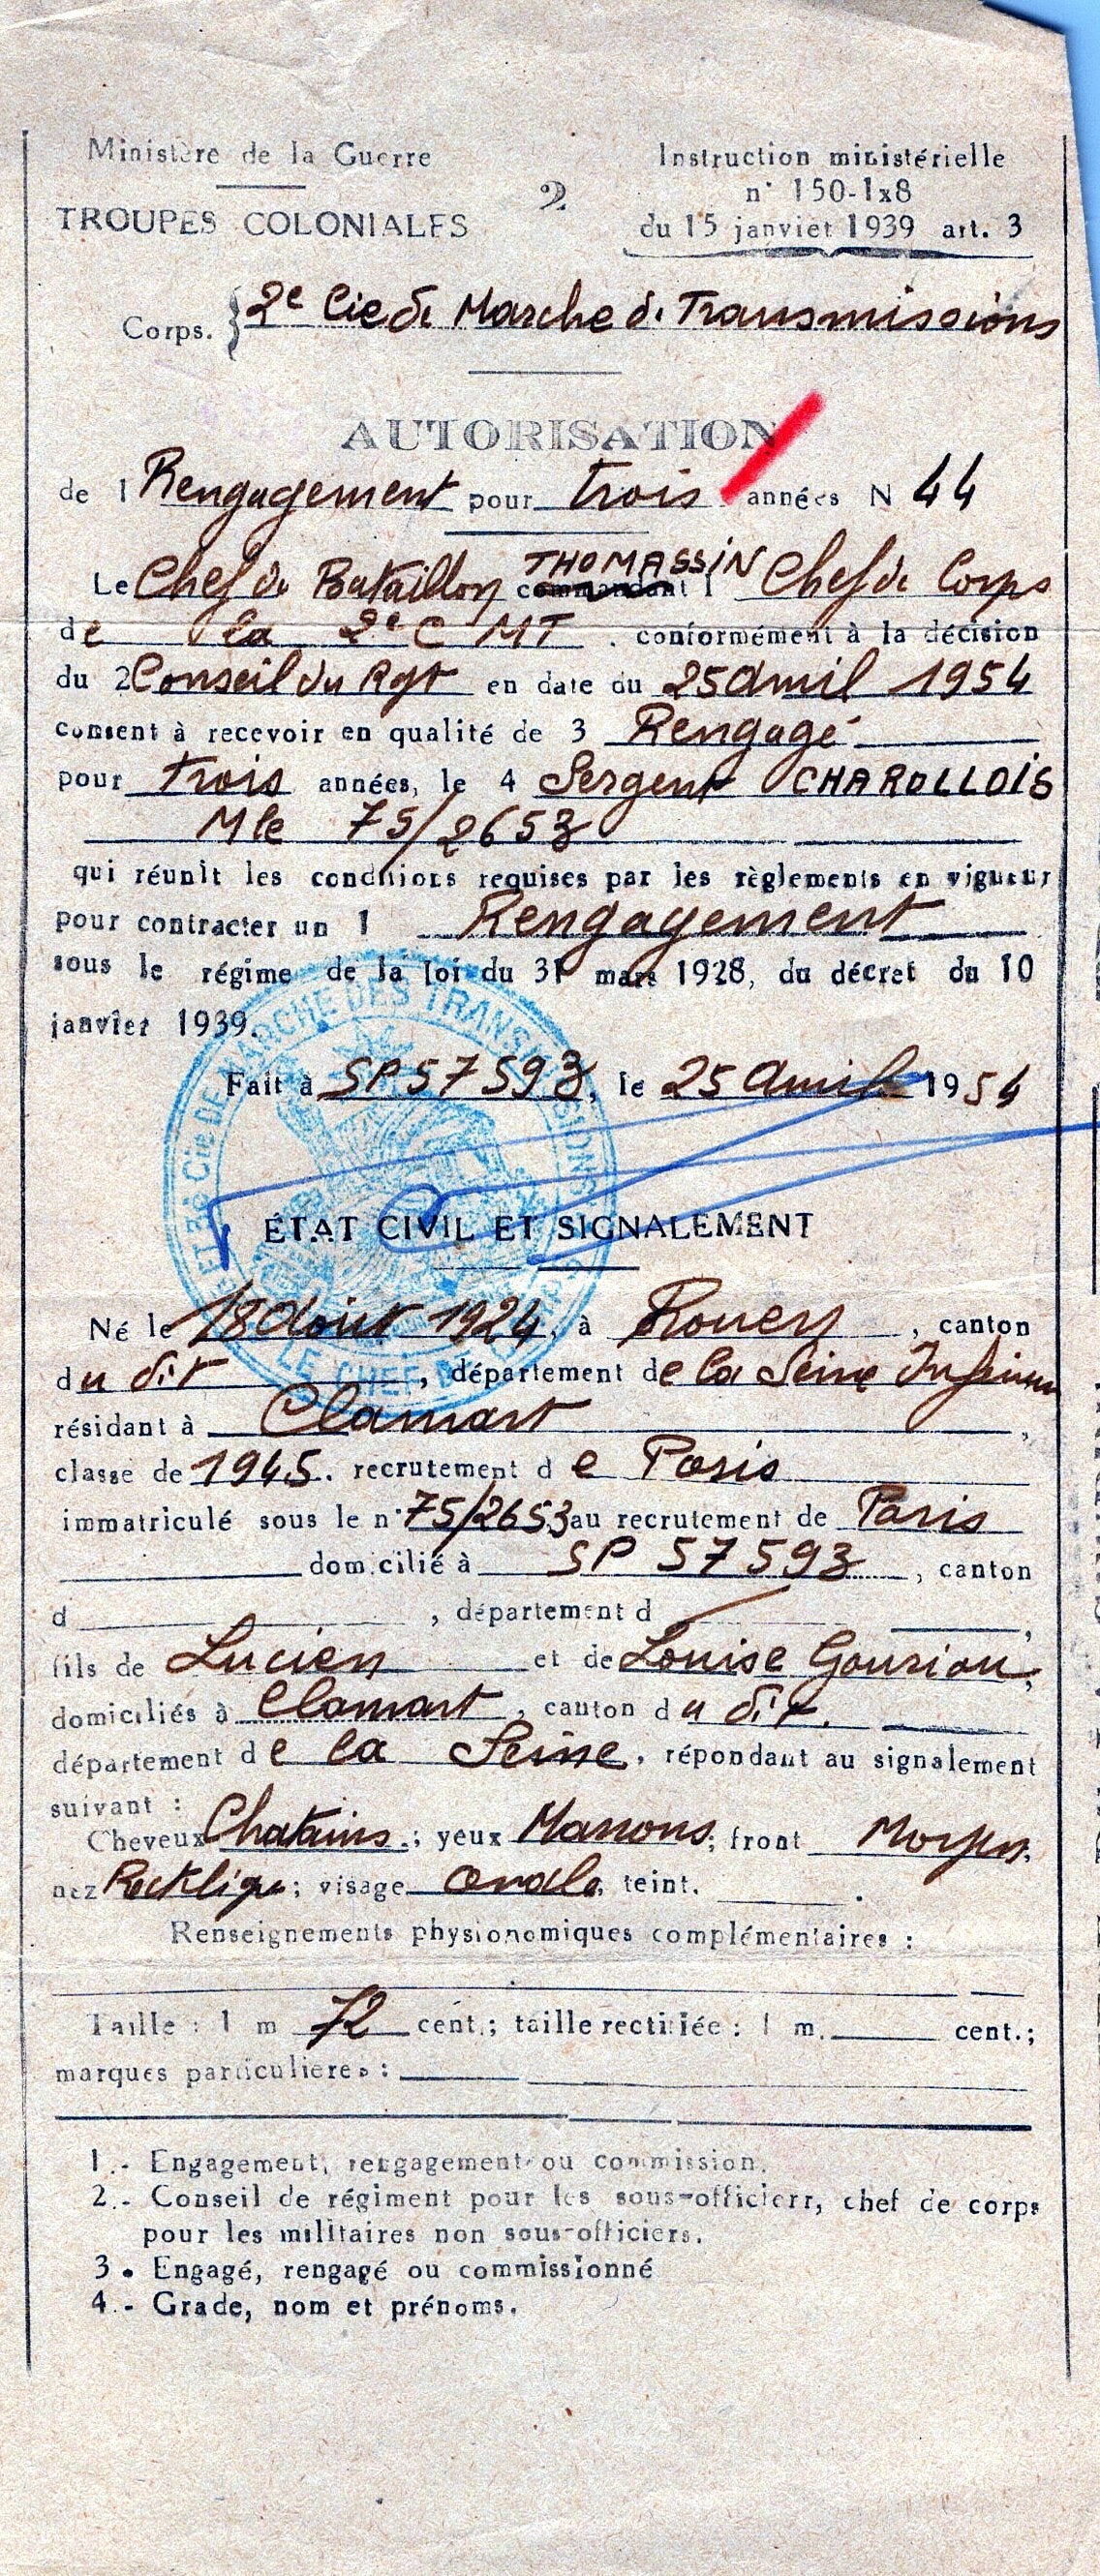 Ministère de la Guerre
TROUPES COLONIALES
2
Instruction ministérielle
n° 150-1x8
du 15 janvier 1939 art. 3
Corps. } 2e Cie de Marche de Transmissions
AUTORISATION
de 1 Rengagement pour trois années N 44
THOMASSIN
Le Chef de Bataillon commandant l Chef de Corps
de la 2e C MT . conformément à la décision
du 2 Conseil du Rgt en date du 25 Avril 1954
consent à recevoir en qualité de 3 Rengagé
pour trois années, le 4 Sergent CHAROLLOIS
Mle 75/2653
qui réunit les conditions requises par les règlements en vigueur
pour contracter un 1 Rengagement
sous le régime de la loi du 31 mars 1928, du décret du 10
janvier 1939.
Fait à SP 57593, le 25 Avril 1954
Cie DE MARCHE DES TRANSMISSIONS
LE CHEF DE
ÉTAT CIVIL ET SIGNALEMENT
Né le 18 Août 1924, à Rouen, canton
du dit, département de la Seine Inférieure
résidant à Clamart,
classe de 1945. recrutement de Paris
immatriculé sous le n° 75/2653 au recrutement de Paris
domicilié à SP 57593, canton
d , département d ,
fils de Lucien et de Louise Gourion,
domiciliés à Clamart, canton du dit.
département de la Seine, répondant au signalement
suivant :
Cheveux Chatains.; yeux Marrons; front Moyen;
nez Rectiligne; visage Ovale, teint. .
Renseignements physionomiques complémentaires :
Taille : 1 m 72 cent.; taille rectifiée : 1 m. cent.;
marques particulieres :
1.- Engagement, rengagement ou commission.
2.- Conseil de régiment pour les sous-officierr, chef de corps
pour les militaires non sous-officiers.
3. Engagé, rengagé ou commissionné
4.- Grade, nom et prénoms.